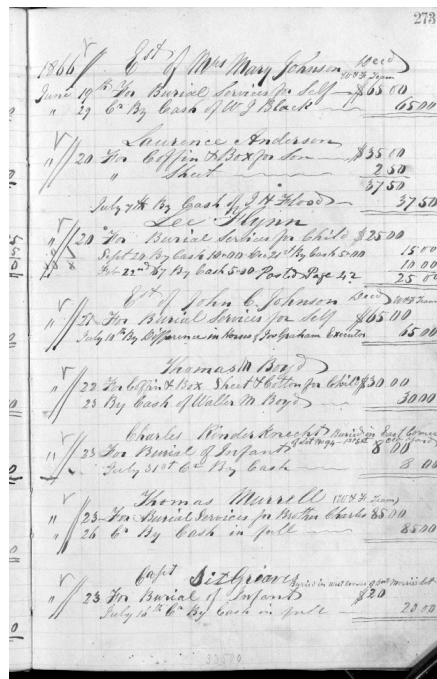 273
1866 Est of Mrs Mary Johnson Decd
W & F Team
June 19th For Burial Services for Self $65 00
" 29 Cr By Cash of W J Black 65 00
Laurence Anderson
" 20 For Coffin & Box for Son $35 00
" Sheet 2 50
37 50
July 7th By Cash of J H Flood 37 50
Lee Flynn
" 20 For Burial Services for Child $25 00
Sept 20 By Cash 10.00 Dec 21st By Cash 5.00 15 00
Feb 22nd 67 By Cash 5.00 Posted Page 42 10 00
25 00
Est of John C. Johnson Decd W & F Team
" 21 For Burial Services for Self $65 00
July 10th By Difference in Horses of Jos Graham Executor 65 00
Thomas M Boyd
" 22 For Coffin & Box Sheet & Cotton for Child $30 00
" 23 By Cash of Waller M Boyd 30 00
Charles Kinder Knecht Buried in East Corner
" 23 For Burial of Infant 8 00
July 31st Cr By Cash 8 00
Thomas Murrell (W & F Team)
" 23 For Burial Services for Brother Charles 85 00
" 26 Cr By Cash in full 85 00
Capt Sizgreaves Buried in west corner of
" 23 For Burial of Infant $20
July 16th Cr By Cash in full 20 00